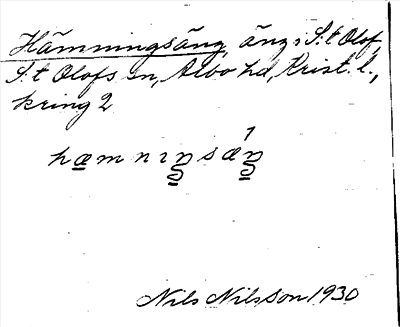 Hämningsäng, äng i S:t Olof,
S:t Olofs sn, Albo hd, Krist. l.,
kring 2
hæmnıŋsæ´ŋ
Nils Nilsson 1930